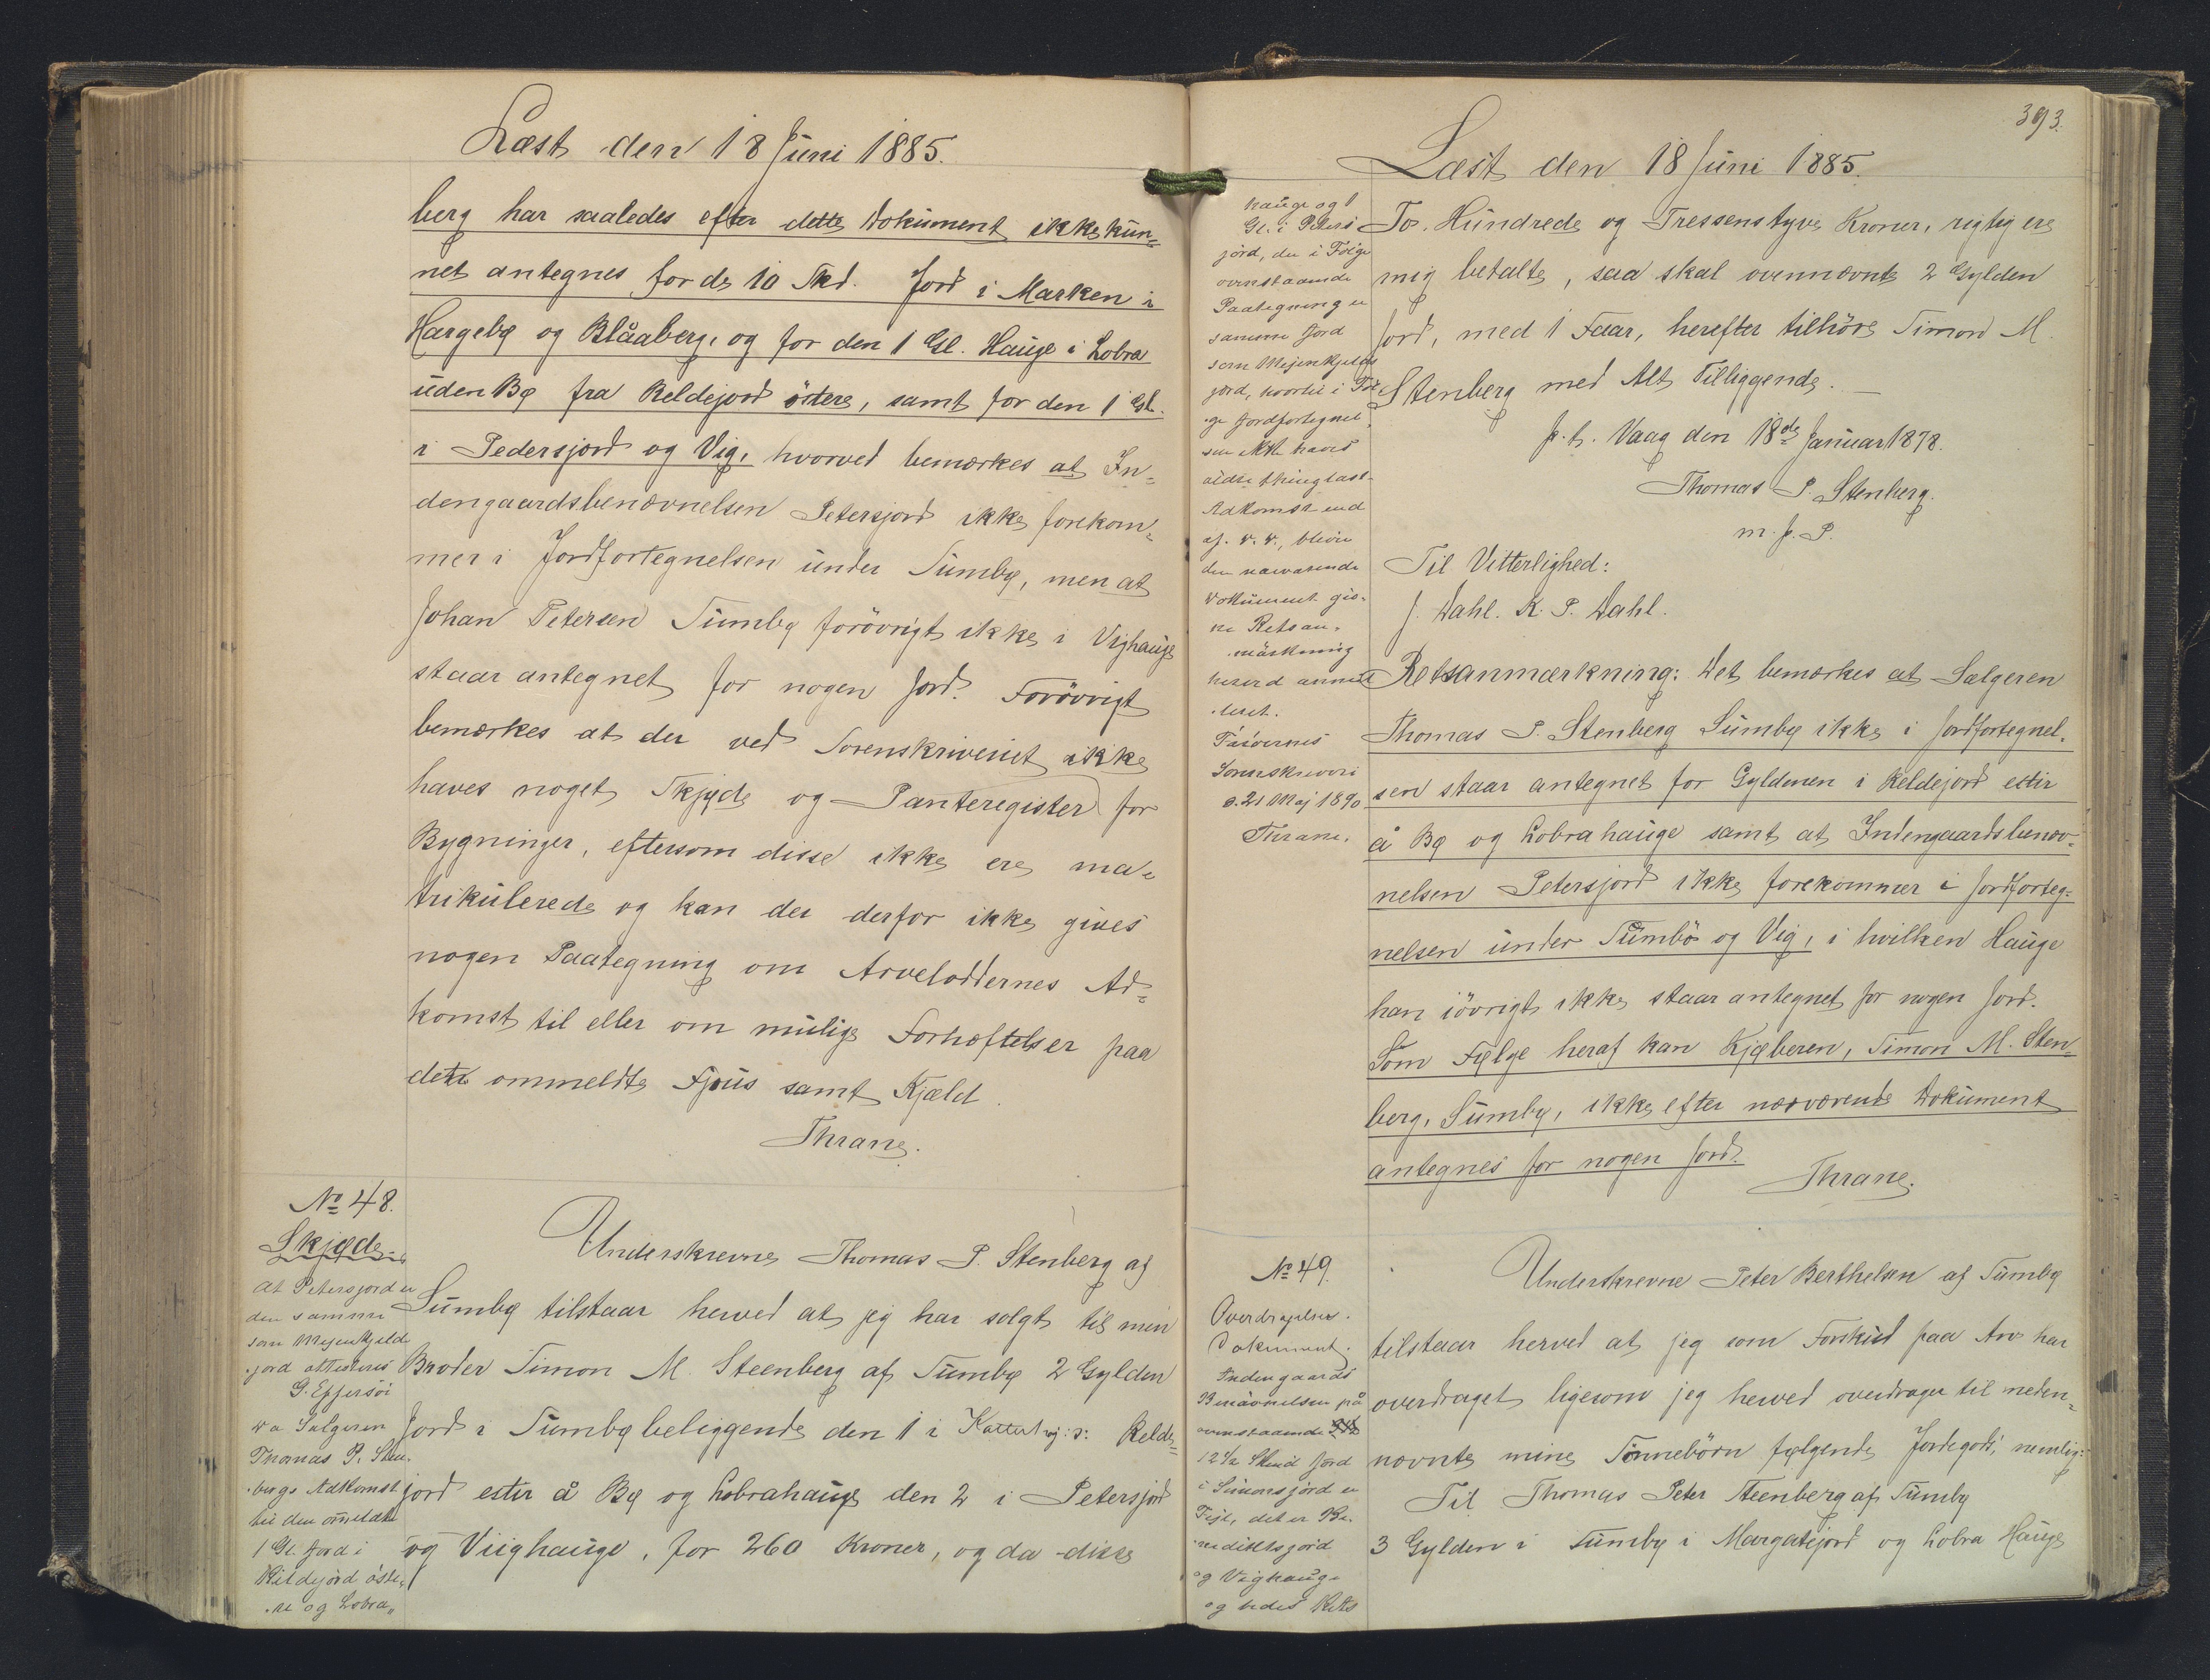 Læst den 18 Juni 1885.
berg har saaledes efter dette Dokument ikke kun-
net antegnes for de 10 Skd. Jord i Marken i
Hargebø og Blåaberg, og for den 1 Gl. Hauge i Lobra
uden Bø fra Reldejord östere, samt for den 1 Gl.
i Pedersjord og Vig, hvorved bemærkes at In-
dengaardsbenævnelsen Petersjord ikke forekom-
mer i Jordfortegnelsen under Sumbø, men at
Johan Petersen Sumbø forövrigt ikke i Vighauge
staar antegnet for nogen Jord. Forövrigt
bemærkes at der ved Sorenskriveriet ikke
haves noget Skjøde og Panteregister for
Bygninger, eftersom disse ikke ere ma-
trikulerede og kan der derfor ikke gives
nogen Paategning om Arveloddernes Ad-
komst til eller om mulige Forhæftelser paa
dete ommeldte Fjøus samt Kjæld.
Thrane.
No 48.
Skjøde
at Petersjord er
den samme
som Mejenkjelde
jord attesteres
G. Effersöe
Da Sælgeren
Thomas P. Sten-
bergs Adkomst
til den om̄eldte
1 Gl. Jord i
Keldejord öste-
re og Lobra
Underskrevne Thomas P. Stenberg af
Sumbø tilstaar herved at jeg har solgt til min
Broder Simon M. Steenberg af Sumbø 2 Gylden
Jord i Sumbø beliggende den 1 i Relde-
jord estir å Bø og Lobrahauge den 2 i Petersjord
og Viighauge, for 260 Kroner, og da disse
393.
Læst den 18 Juni 1885.
hauge og 1
Gl. i Peters
jord, der i Følge
ovenstaaende
Paategning er
samme Jord
som Mejenkjelde
jord, hvortil i Føl-
ge Jordfortegnel-
sen ikke haves
ældre thinglæst
Adkomst end
af. D. D., bliver
den nærværende
Dokument giv-
ne Retsan-
mærkning
herved annul-
leret.
Færøernes
Sorenskriveri
d. 21 Maj 1890
Thrane.
To Hundrede og Tressenstyve Kroner, rigtig ere
mig betalte, saa skal ovennævnte 2 Gylden
Jord, med 1 Faar, herefter tilhöre Simon M.
Stenberg med Alt Tilliggende.
p. t. Vaag den 18de Januar 1878.
Thomas P. Stenberg.
m. p. P.
Til Vitterlighed:
J. Dahl. K. P. Dahl.
Retsanmærkning: Det bemærkes at Sælgeren
Thomas P. Stenberg Sumbø ikke i Jordfortegnel-
sen staar antegnet for Gyldenen i Reldejord estir
å Bø og Lobrahauge samt at Indengaardsbenæv-
nelsen Petersjord ikke forekommer i Jordforteg-
nelsen under Sumbö og Vig, i hvilken Hauge
han iövrigt ikke staar antegnet for nogen Jord.
Som Følge heraf kan Kjøberen, Simon M. Sten-
berg, Sumbø, ikke efter nærværende Dokument
antegnes for nogen Jord.
Thrane.
No 49.
Overdragelses-
Dokument.
Indengaards
Benævnelsen på
ovenstaaende
12½ Skind Jord
i Simonsjord er
Teje, det er Be-
nediktsjord
og Vighauge
og bedes Rets
Underskrevne Peter Berthelsen af Sumbø
tilstaar herved at jeg som Forskud paa Arv har
overdraget ligesom jeg herved overdrager til neden-
nævnte mine Sönnebörn følgende Jordegods, nemlig:
Til Thomas Peter Steenberg af Sumbø
3 Gylden i Sumbø i Margatejord og Lobra Hauge